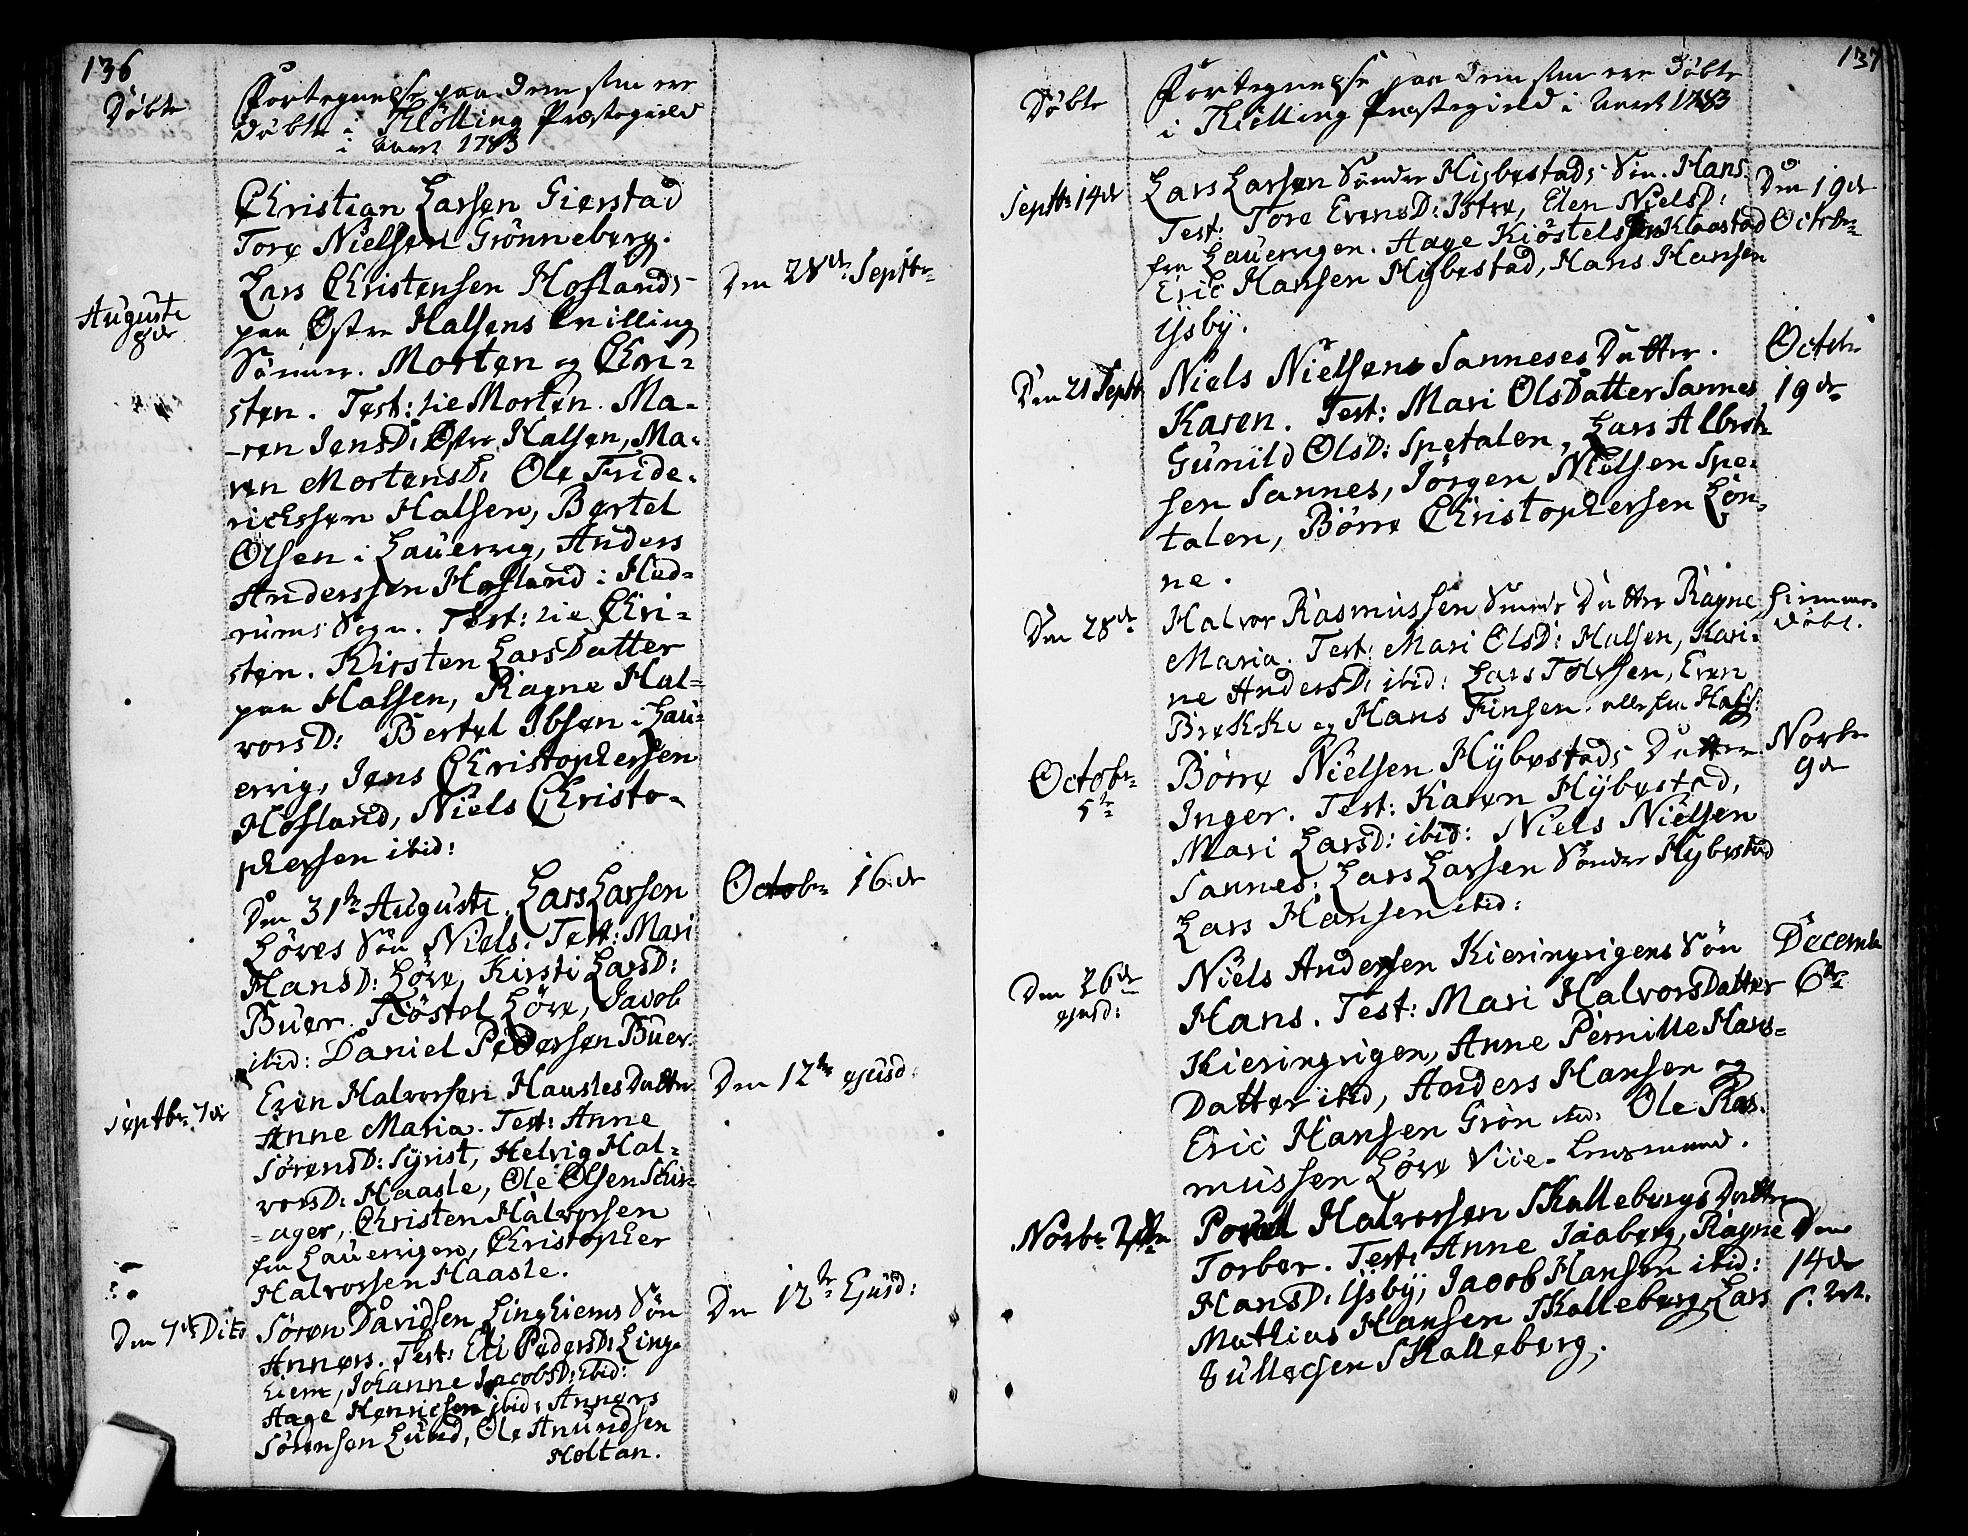 136
Døbte
Fortegnelse paa dem som ere
døbte i Kiølling Præstegield
i Aaret 1783
Christian Larsen Gierstad
Tore Nielsen Grønneberg.
Augusti
Lars Christensen Hoflands
Den 28de Septbr
paa Østre Halsens tvilling
Sønner. Morten og Chri-
sten. Test: til Morten. Ma-
-ren JensD: Østre Halsen, Ma-
ren MortensD: Ole Fride-
richssen Halsen, Bertel
Olsen i Lauervig, Anders
Anderssen Hofland i Hed-
rums Sogn. Test: til Chri-
sten. Kirsten LarsDatter
paa Halsen, Ragne Hal-
vorsD: Bertel Ibsen i Lau-
ervig, Jens Christophersen
Hofland, Niels Christo-
phersen ibid:
Den 31te Augusti. Lars Larsen
Octobr 16de
Løves Søn Niels. Test: Mari
HansD: Løve, Kirsti LarsD:
Buer. Kiøstel Løve, Jacob
ibid: Daniel Pedersen Buer.
Septbr 7de
Even Halvorsen Haasles Datter
Den 12te ejusd:
Anne Maria. Test: Anne
SørensD: Syrist, Helvig Hal-
vorsD: Haasle, Ole Olsen Schir-
-ager, Christen Halvorsen
fra Lauervigen, Christopher
Halvorssen Haasle.
Den 7de Dito
Søren Davidsen Linghiems Søn
Den 12te Ejusd:
Anners. Test: Eli PedersD: Ling-
hiem, Johanne JacobsD: ibid:
Aage Henricsen ibid: Anners
Sørensen Lund, Ole Anundsen
Holtan.
137
Døbte
Fortegnelse paa dem som ere Døbte
i Kiølling Præstegield i Aaret 1783
Septbr 14de
Lars Larsen Søndre Hybestads Søn. Hans.
Den 19de
Test: Tore EvensD: Istre, Elen NielsD:
Octobr
fra Lauervigen. Aage Kiøstelsen Klaastad
Eric Hansen Hybestad, Hans Hansen
Ysby.
Den 21 Septb
Niels Nielsens Sanneses Datter.
Octobr
Karen. Test: Mari OlsDatter Sannes
19de
Gunild OlsD: Spetalen, Lars Albret-
sen Sannes, Jørgen Nielsen Spe-
talen, Børre Christophersen Løn-
ne.
Den 28de
Halvor Rasmussen Datter Ragne
hiemme-
Maria. Test: Mari OlsD: Halsen, Kari-
døbt.
ne AndersD: ibid: Lars Tolvsen, Even
Brekke og Hans Finsen. alle fra Hals:
Octobr
5te
Børre Nielsen Hybestads Datter
Novbr
9de
Inger. Test: Karen Hybestad,
Mari LarsD: ibid: Niels Nielsen
Sannes. Lars Larsen Søndre Hybestad
Lars Hansen ibid:
Den 26de
ejusd:
Niels Andersen Kieringvigens Søn
Decembr
Hans. Test: Mari HalvorsDatter
6te
Kieringvigen, Anne Pernille Hans-
Datter ibid, Anders Hansen og
Eric Hansen Grøn ibid: Ole Ras-
mussen Løve Vice-Lensmand.
Novbr
Povel Halvorsen Skallebergs Datter
Torber. Test: Anne Jaaberg, Ragne
Den
HansD: Ysby, Jacob Hansen ibid:
14de
Mathias Hansen Skalleberg, Lars
Gullichsen Skalleberg.